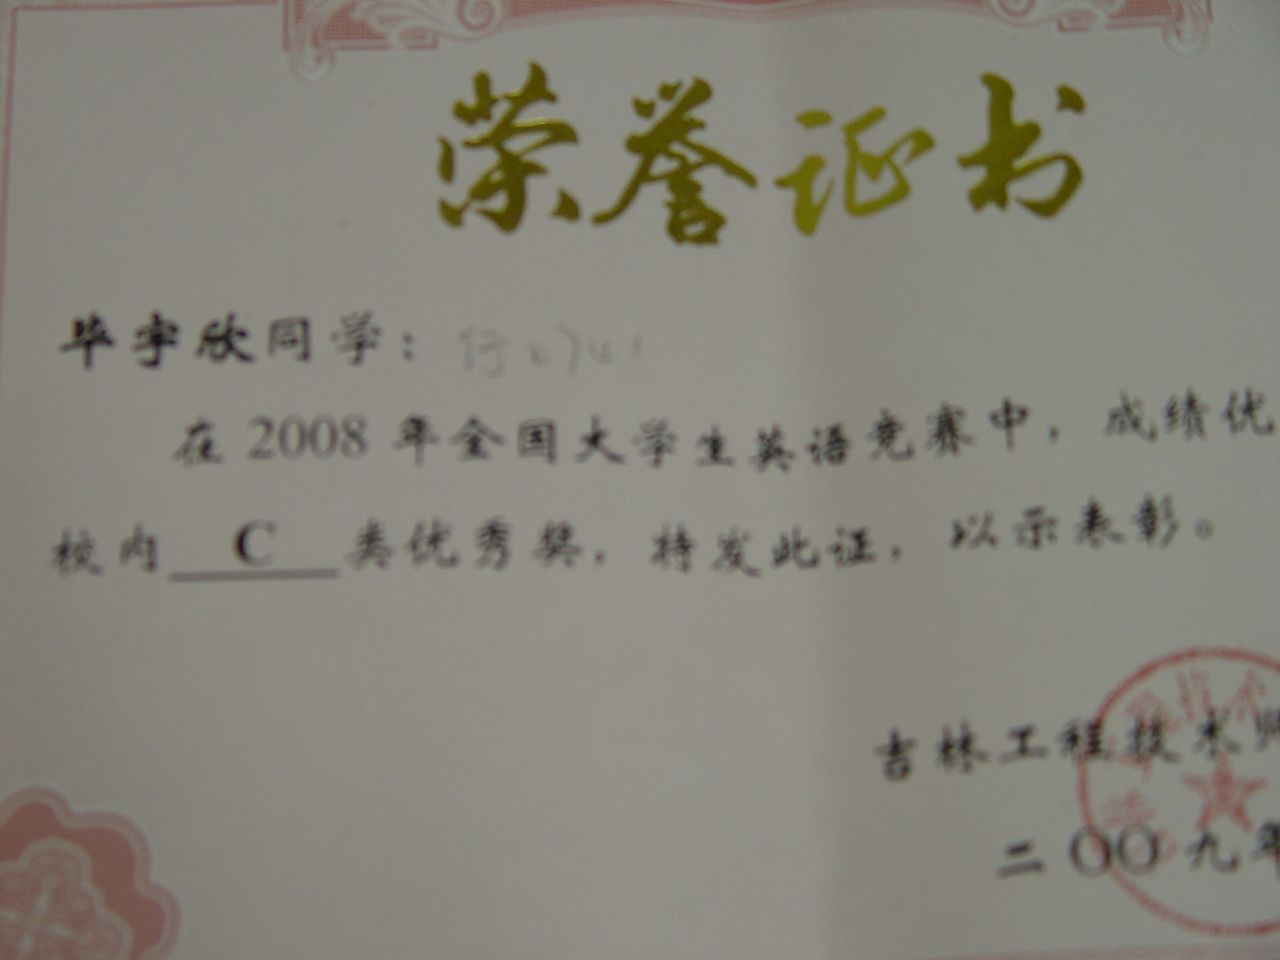 荣誉证书
毕宇欣同学：行0741
在 2008 年全国大学生英语竞赛中，成绩优
校内 C 类优秀奖，特发此证，以示表彰。
吉林工程技术师
二〇〇九年